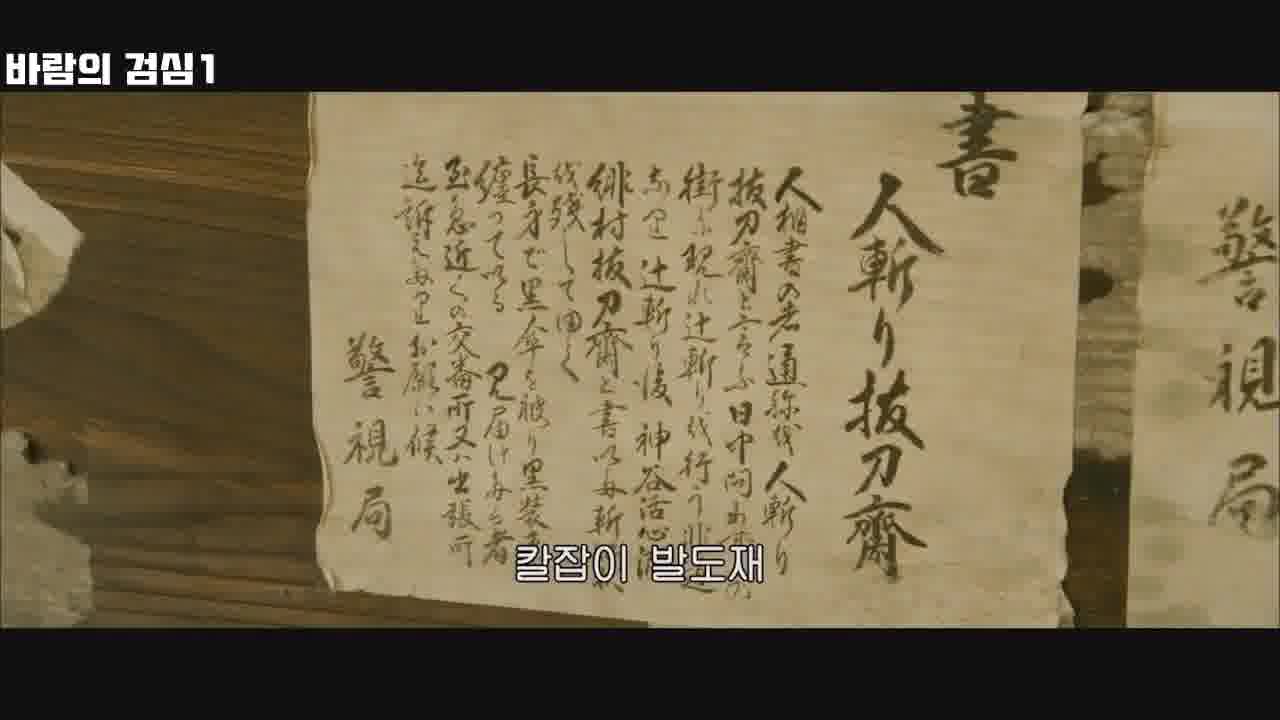 바람의 검심1
書
人斬り抜刀斎
人相書の者 通称 人斬り
抜刀斎と云ふ 日中問
街に現れ辻斬り 行う
辻斬り後 神谷活心流
緋村抜刀斎と書
残して
長身で黒傘を被り黒装
纏って 見届け 者
至急近くの交番所又は出張所
迄訴え お願い候
警視局
警視局
칼잡이 발도재